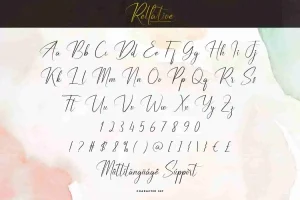 Relfatine
Aa Bb Cc Dd Ee Ff Gg Hh Ii Jj
Kk Ll Mm Nn Oo Pp Qq Rr Ss
Tt Uu Vv Ww Xx Yy Zz
1 2 3 4 5 6 7 8 9 0
Multilanguage Support
CHARACTER SET